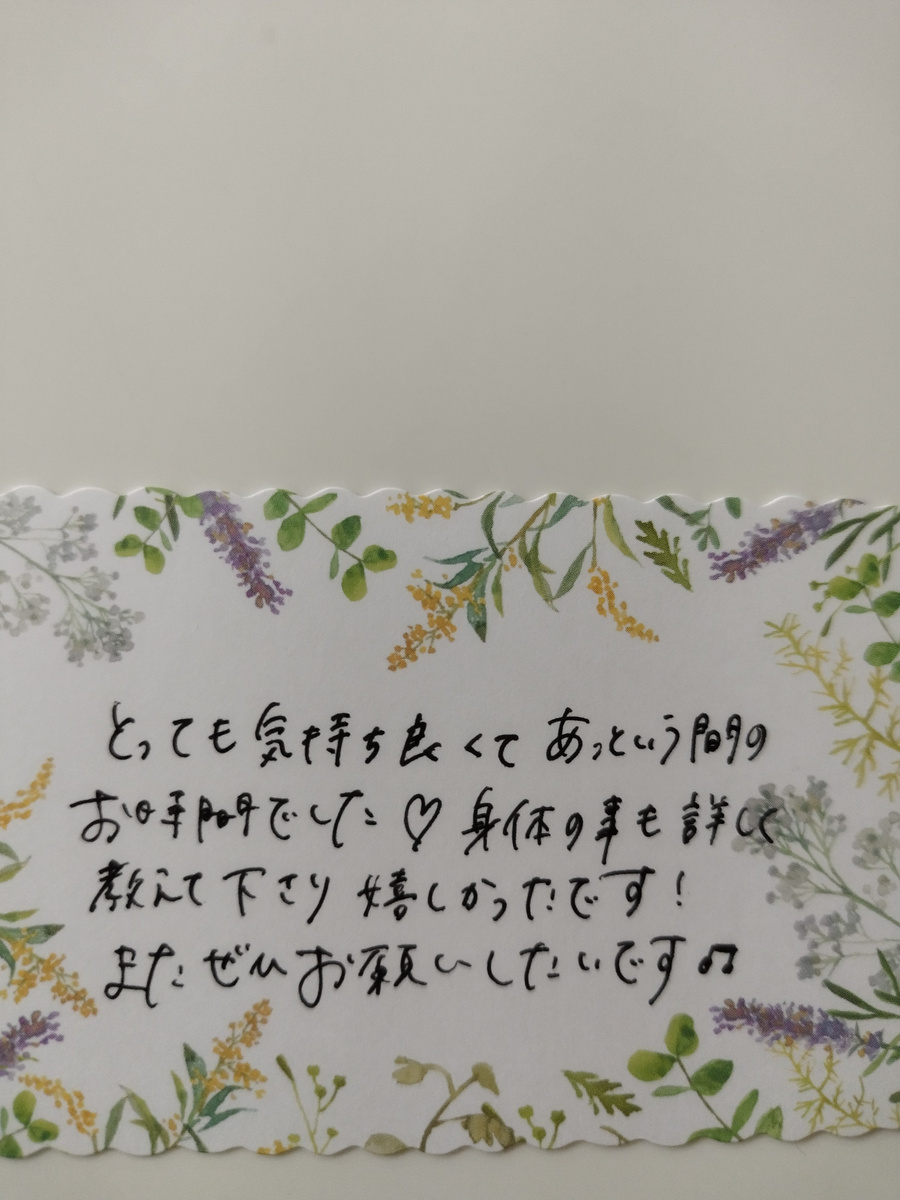 とっても気持ち良くてあっという間の
お時間でした♡身体の事も詳しく
教えて下さり嬉しかったです！
またぜひお願いしたいです♫